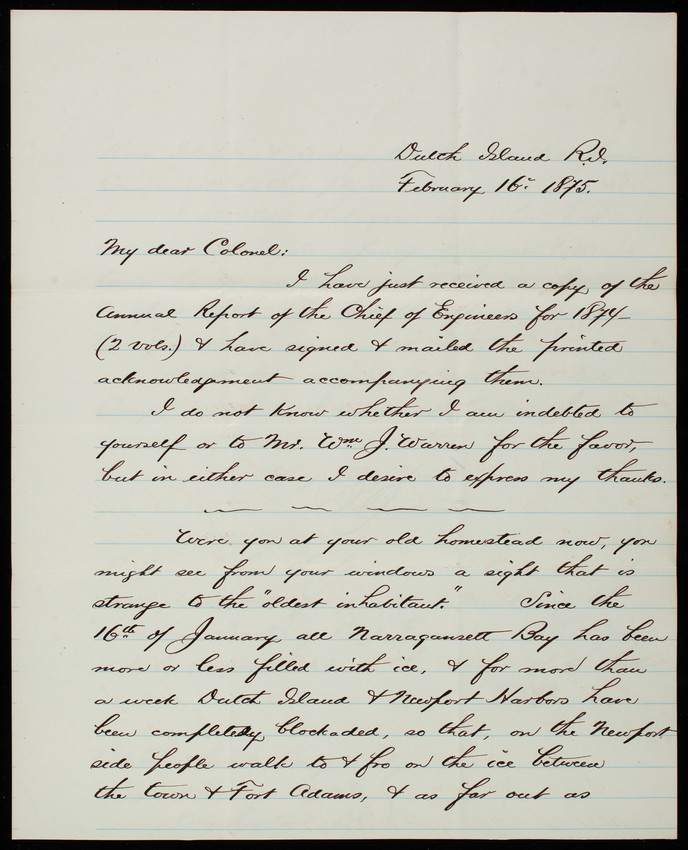 Dutch Island R.I.
February 16th 1875.
My dear Colonel:
I have just received a copy of the
Annual Report of the Chief of Engineers for 1874
(2 vols.) & have signed & mailed the printed
acknowledgement accompanying them.
I do not know whether I am indebted to
yourself or to Mr. Wm J. Warren for the favor,
but in either case I desire to express my thanks.
Were you at your old homestead now, you
might see from your windows a sight that is
strange to the "oldest inhabitant." Since the
16th of January all Narragansett Bay has been
more or less filled with ice, & for more than
a week Dutch Island & Newport Harbors have
been completely blockaded, so that, on the Newport
side people walk to & fro on the ice between
the town & Fort Adams, & as far out as